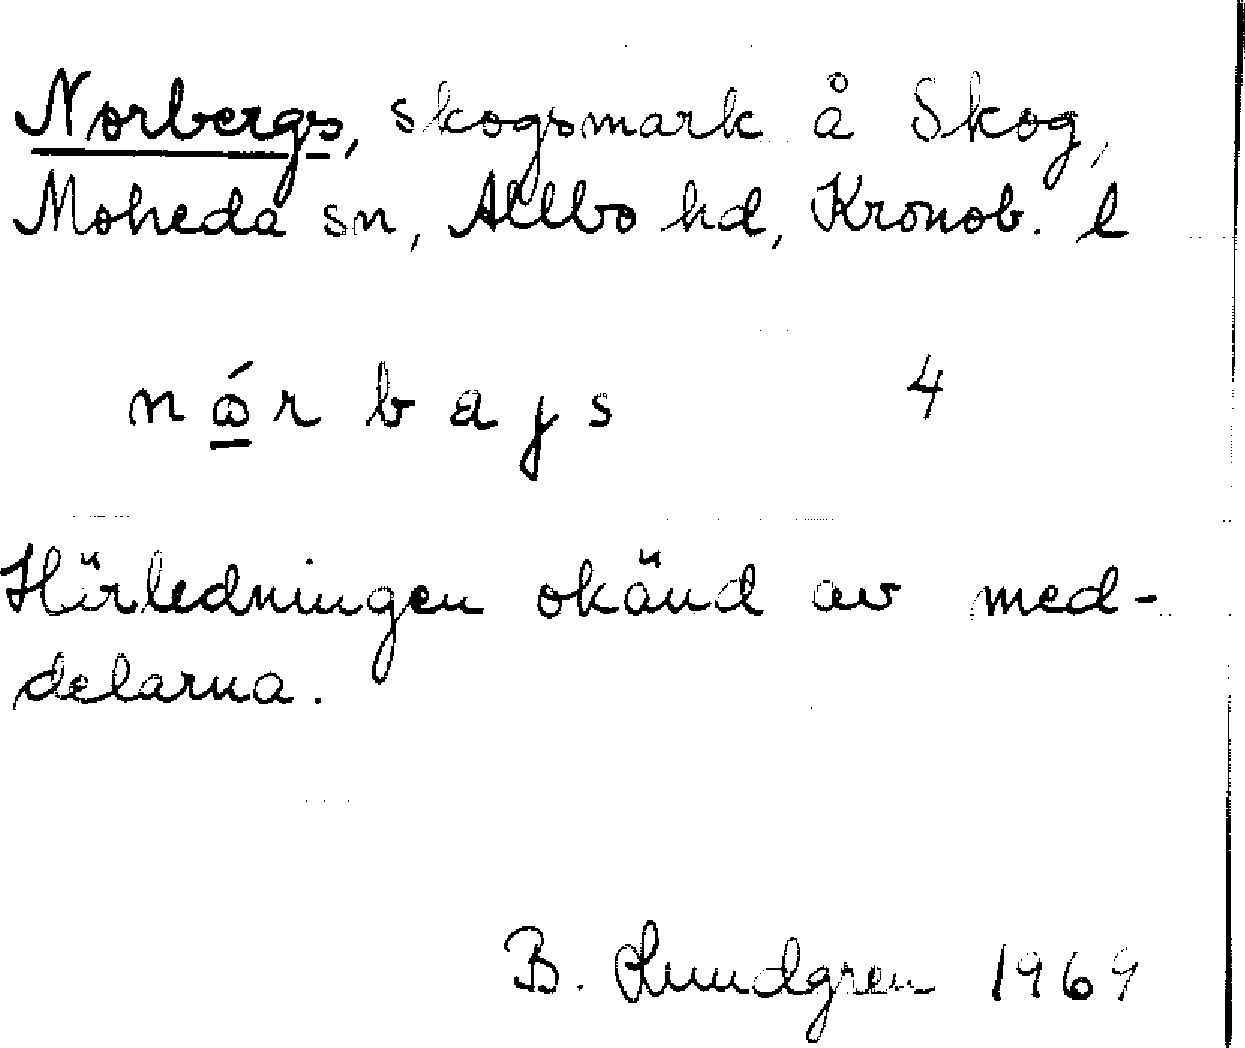 Norbergs, skogsmark å Skog,
Moheda sn, Allbo hd, Kronob. l
nórbajs 4
Härledningen okänd av med-
delarna.
B. Lundgren 1969